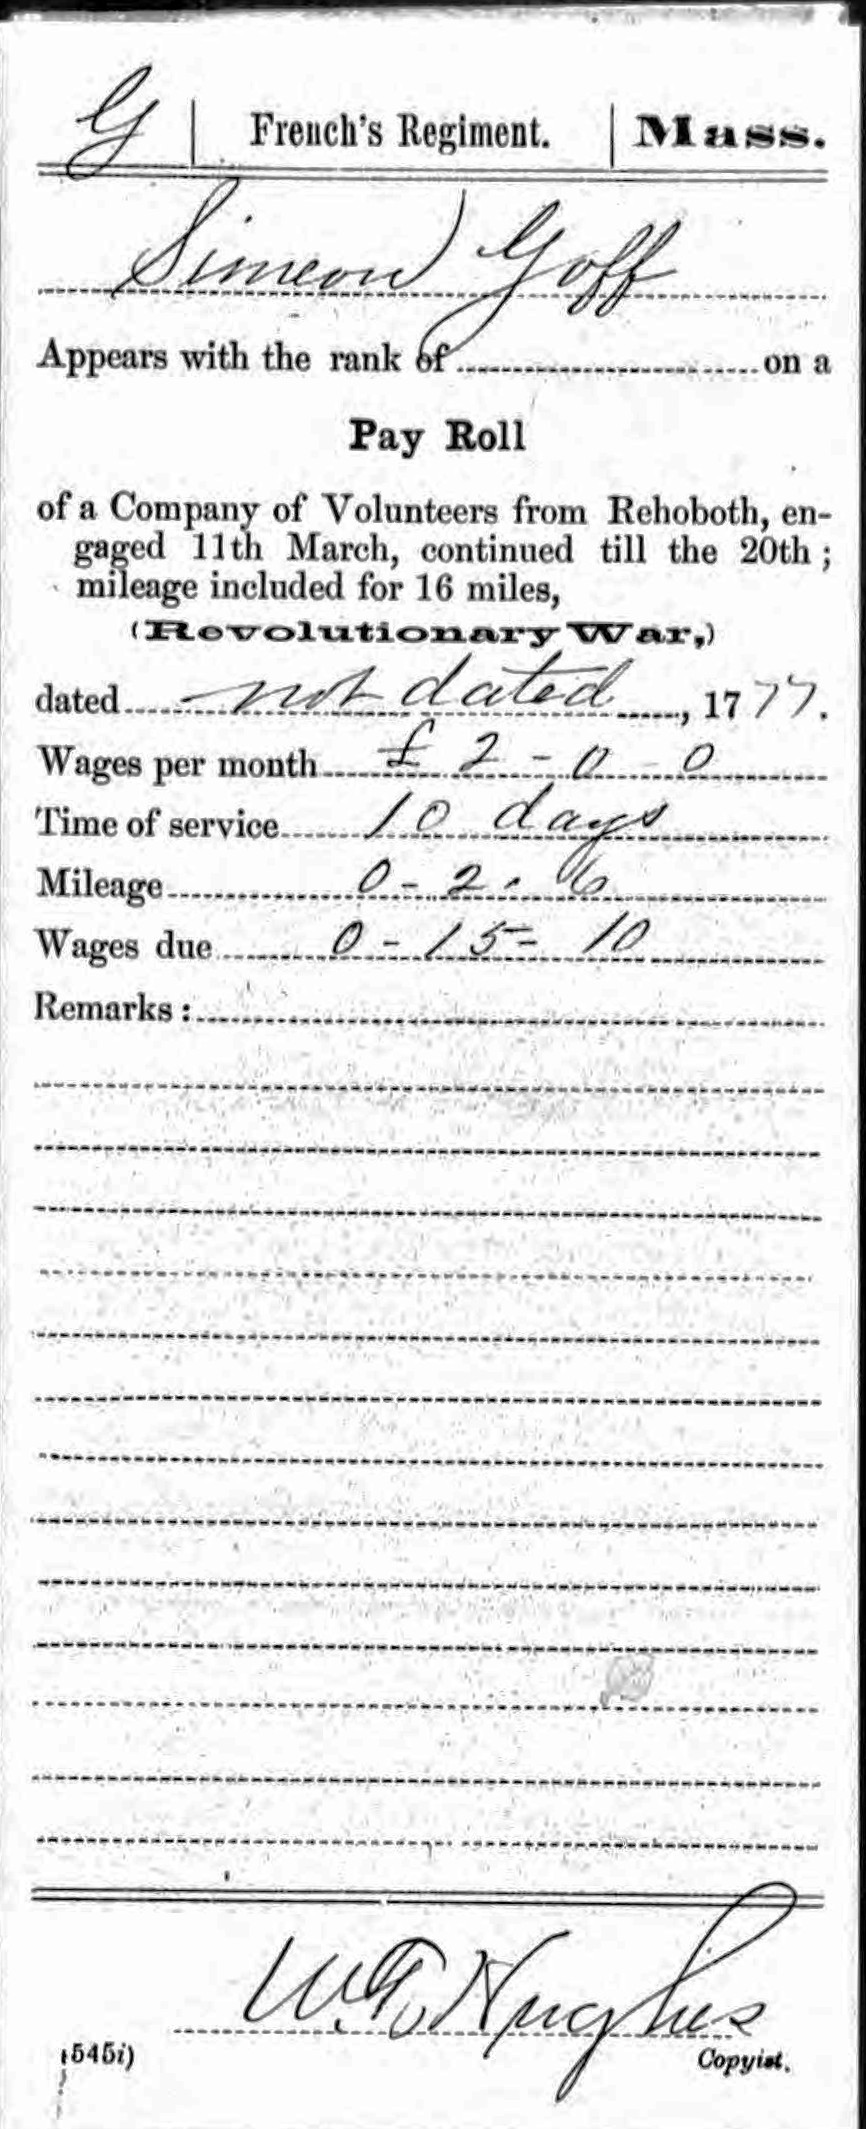 G | French's Regiment. | Mass.
Simeon Goff
Appears with the rank of on a
Pay Roll
of a Company of Volunteers from Rehoboth, en-
gaged 11th March, continued till the 20th;
mileage included for 16 miles,
(Revolutionary War,)
dated not dated, 1777.
Wages per month £ 2 - 0 - 0
Time of service 10 days
Mileage 0 - 2 - 6
Wages due 0 - 15 - 10
Remarks:
Hughes
545i)
Copyist.